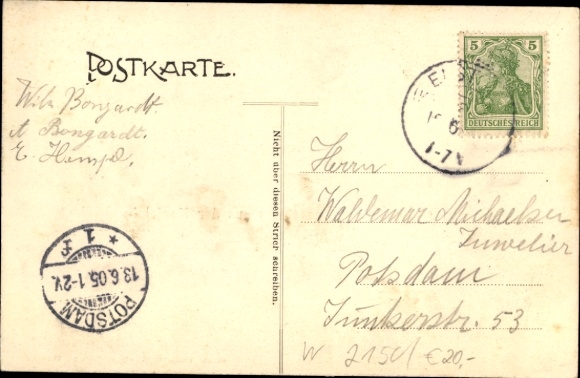 POSTKARTE.
5 5
DEUTSCHES REICH
6
1-7 V
Wilh. Bongardt.
A Bongardt.
E. Hempel.
Nicht über diesen Strich schreiben.
Herrn
Waldemar Michaelsen
Juwelier
Potsdam
Junkerstr. 53
POTSDAM
13.6.05.1-2V.
* 1 f
W 2150/ €20,-